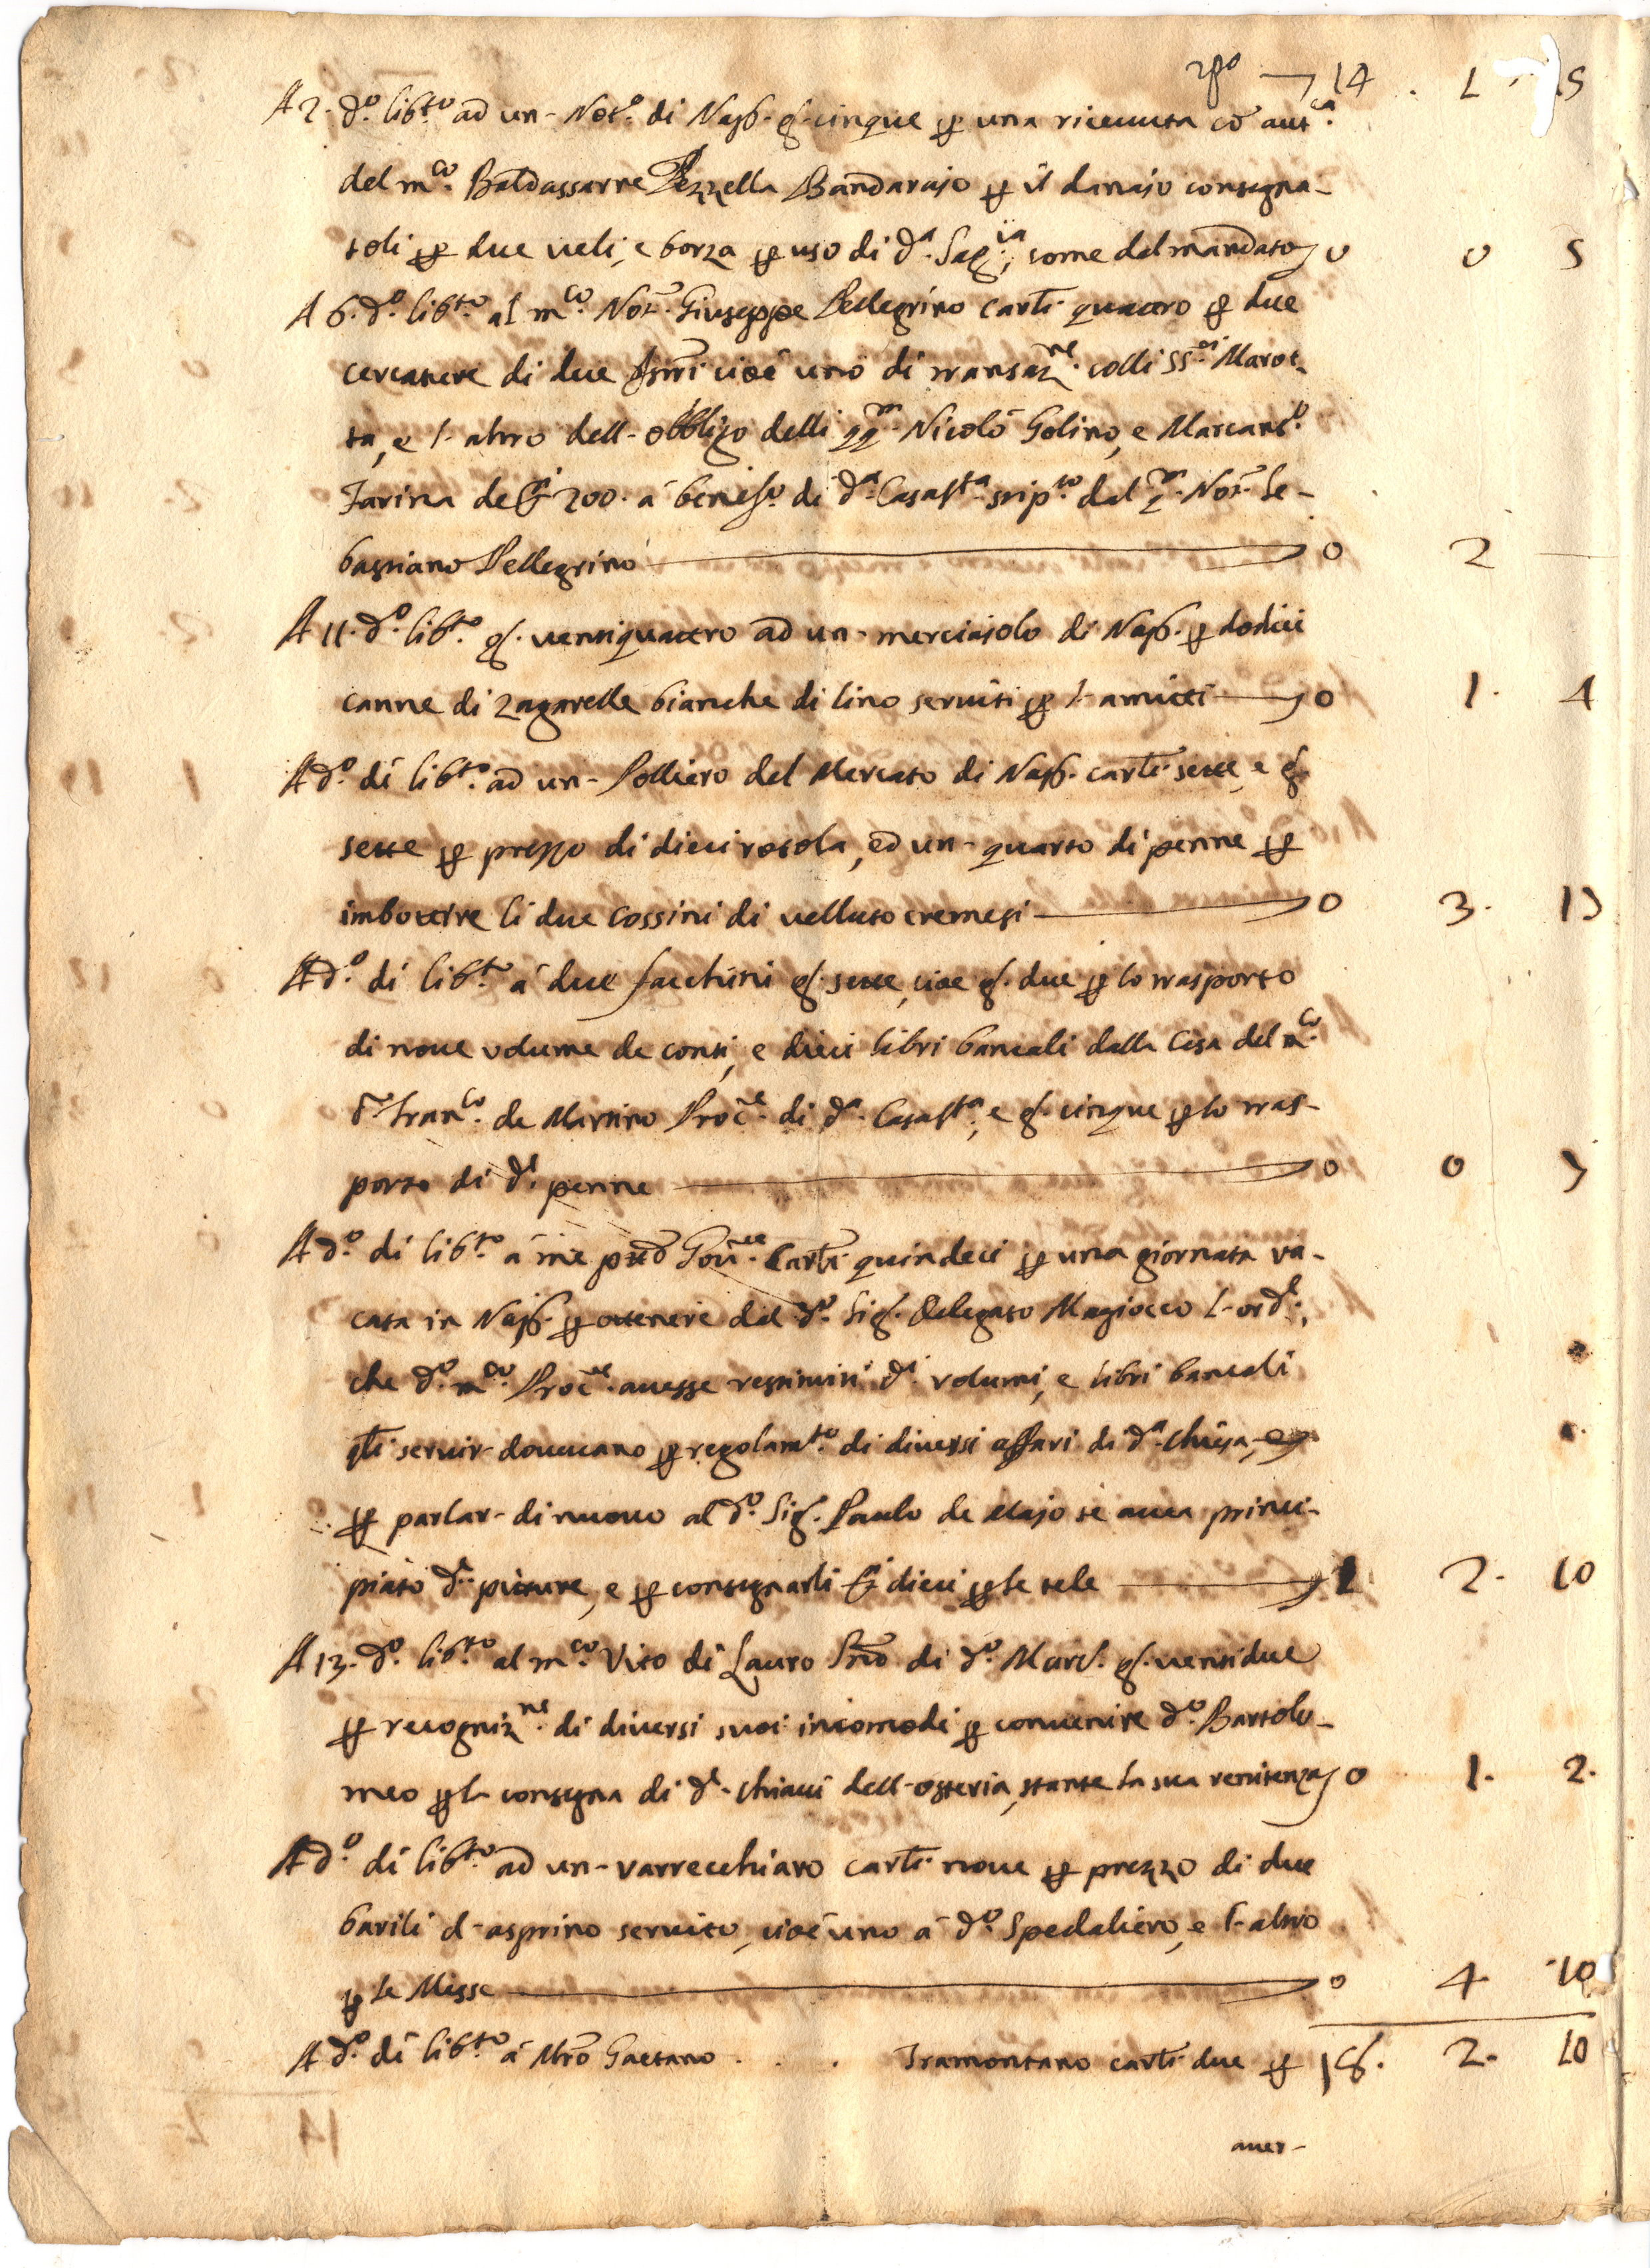 14 . 1 . 15
A 2. d.o lib.to ad un- Not.o di Nap. g. cinque per una riceuuta cō aut.ca
del m.co Baldassarre Pezzella Bandarajo per il danajo consegna-
toli per due ueli, e borza per uso di d.a Sag.ia, come dal mandato 0 0 5
A 6. d.o lib.to al m.co Not. Giuseppe Pellegrino carti. quattro per due
cercature di due Istri cioè uno di transaz.ne colli SS.ri Marot-
ta, e l-altro dell-obbligo delli qq.m Nicolò Golino, e Marcant.o
Farina de 200. à benef.o di d.a Casas.ta stip.to dal q.m Not. Se-
bastiano Pellegrino 0 2
A 11. d.o lib.to g. uentiquattro ad un- merciajolo di Nap. per dodici
canne di zagarelle bianche di lino seruiti per l-amitti 0 1. 4
A d.o dì lib.to ad un- Polliero del Mercato di Nap. carti. sette, e g.
sette per prezzo di dieci rotola, ed un- quarto di penne per
imbottire li due cossini di velluto cremesi 0 3. 17
A d.o dì lib.to à due facchini g. sette, cioe g. due per lo trasporto
di noue volume de conti, e dieci libri bancali dalla Casa del m.co
d. Fran.co de Martino Proc.e di d.a Casas.ta, e g. cinque per lo tras-
porto di d.e penne 0 0 7
A d.o dì lib.to à me Gou.re Carti quindeci per una giornata va-
cata in Nap. per ottenere dal d.o Sig. Delegato Magiocco l-ord.e,
che d.o m.co Proc.e auesse restituiti d.i volumi, e libri bancali
seruir-doueuano per regolam.to di diuersi affari di d.a chiesa, e
per parlar-di nuouo al d.o Sig. Paulo de Majo se auea princi-
piato d.e pitture, e per consegnarli dieci per le tele 1 2. 10
A 13. d.o lib.to al m.co Vito di Lauro di d.o Marc. g. uentidue
per recogniz.ne di diuersi suoi incomodi per conuenire d.o Bartolo-
meo per la consegna di d.e chiaui dell-osteria, stante la sua renitenza 0 1. 2.
A d.o dì lib.to ad un-varrecchiaro carti. noue per prezzo di due
barili d-asprino seruito, cioè uno à d.o Spedaliero, e l-altro
per le Messe 0 4. 10
A d.o dì lib.to à Mro Gaetano . . . Tramontano carti. due per 16. 2. 10
auer-